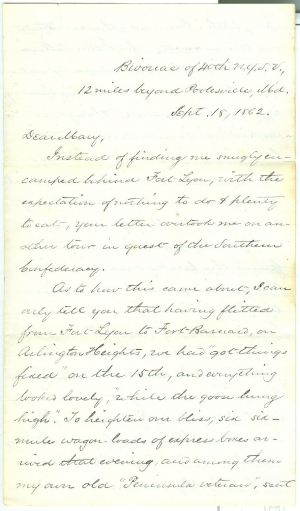 Bivouac of 40th N.Y.S.V.,
12 miles beyond Poolesville, Md.
Sept. 18, 1862.
Dear Mary,
Instead of finding me snugly en-
camped behind Fort Lyon, with the
expectation of nothing to do & plenty
to eat, your letter overtook me on an-
other tour in quest of the Southern
Confederacy.
As to how this came about, I can
only tell you that having flitted
from Fort Lyon to Fort Barnard, on
Arlington Heights, we had "got things
fixed" on the 15th, and everything
looked lovely, "while the goose hung
high." To heighten our bliss, six six-
mule wagon-loads of express boxes ar-
rived that evening, and among them
my own old "Peninsula veteran", sent